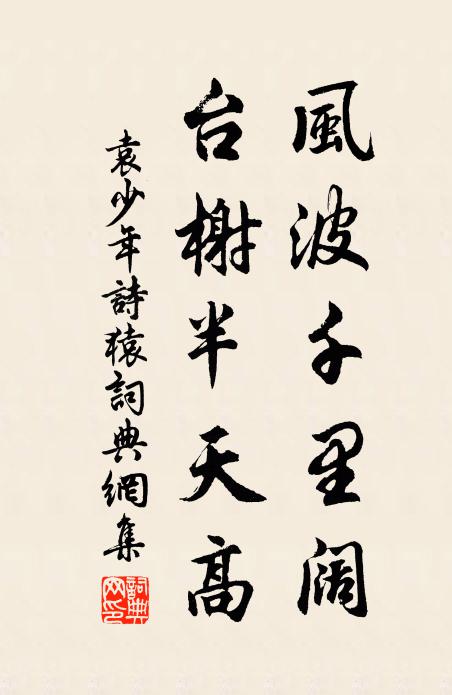 風波千里阔
台榭半天高
袁少年詩猿詞典網集
詞典网印